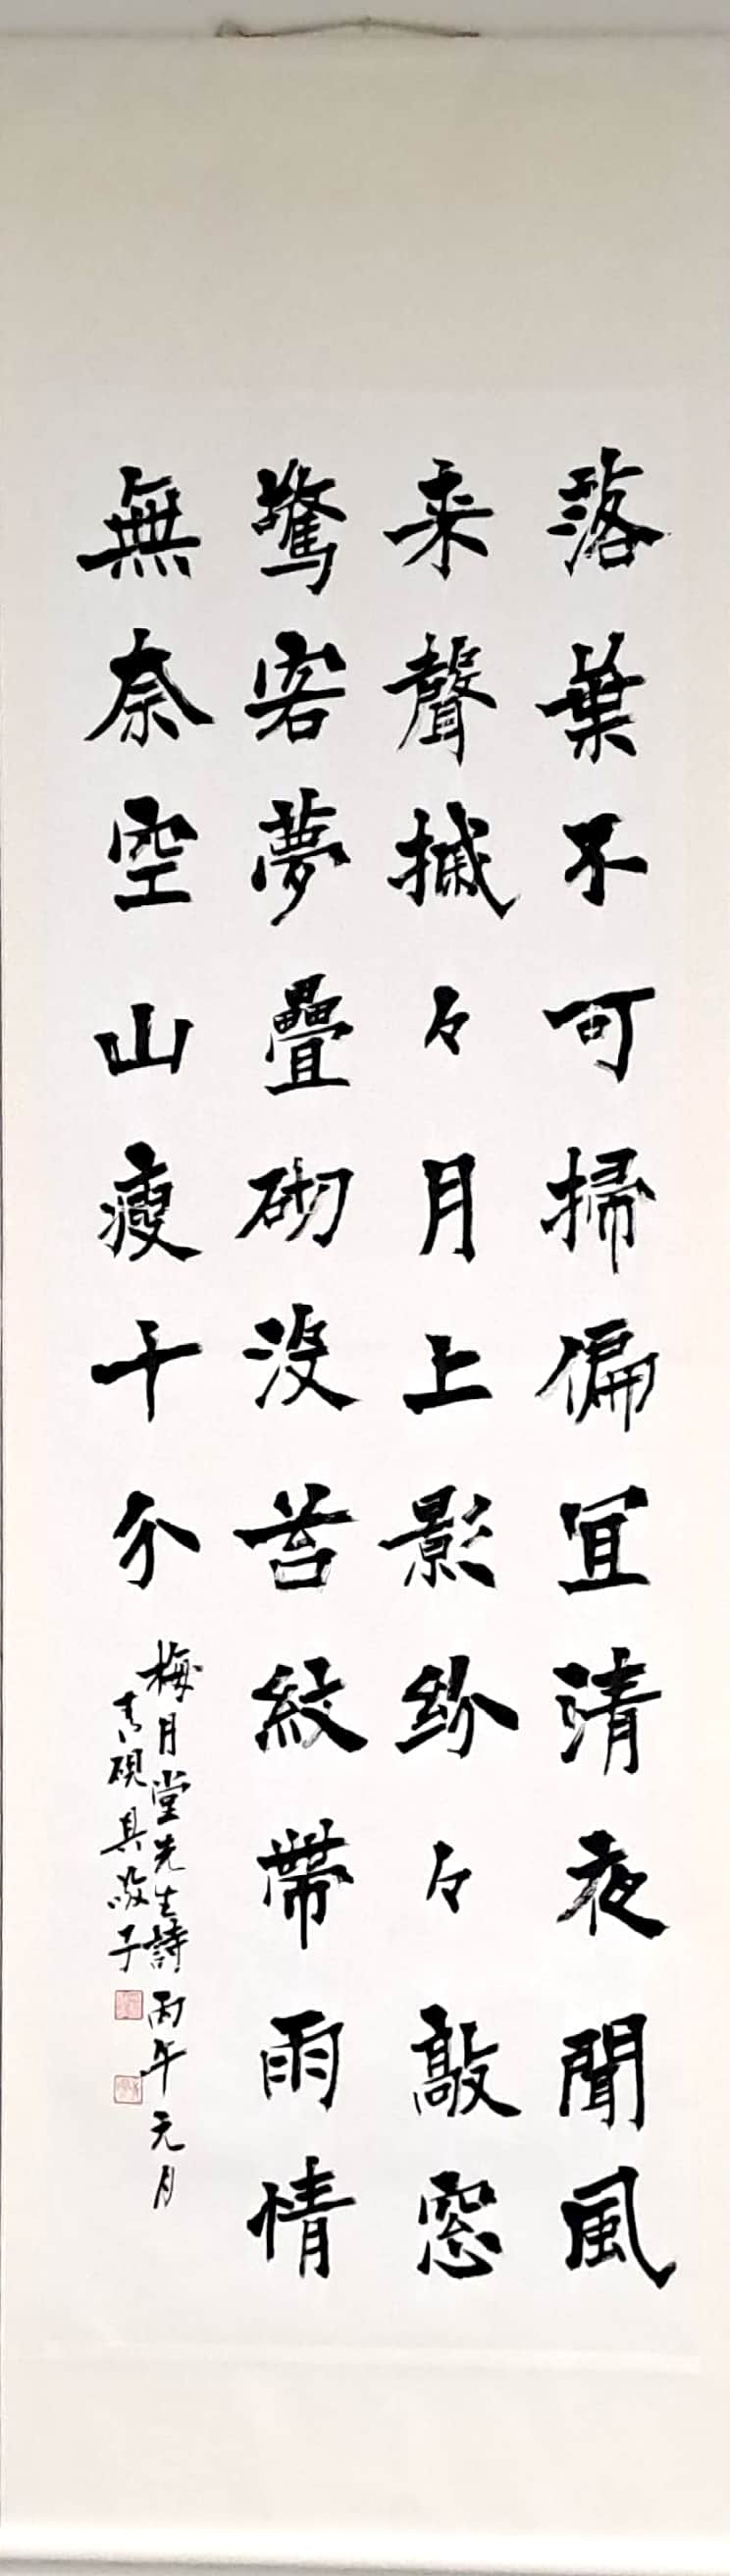 落葉不可掃偏宜清夜聞風
来聲摵々月上影紛々敲窓
驚客夢疊砌沒苔紋帶雨情
無奈空山瘦十分
梅月堂先生詩 丙午元月
青硯具敬子